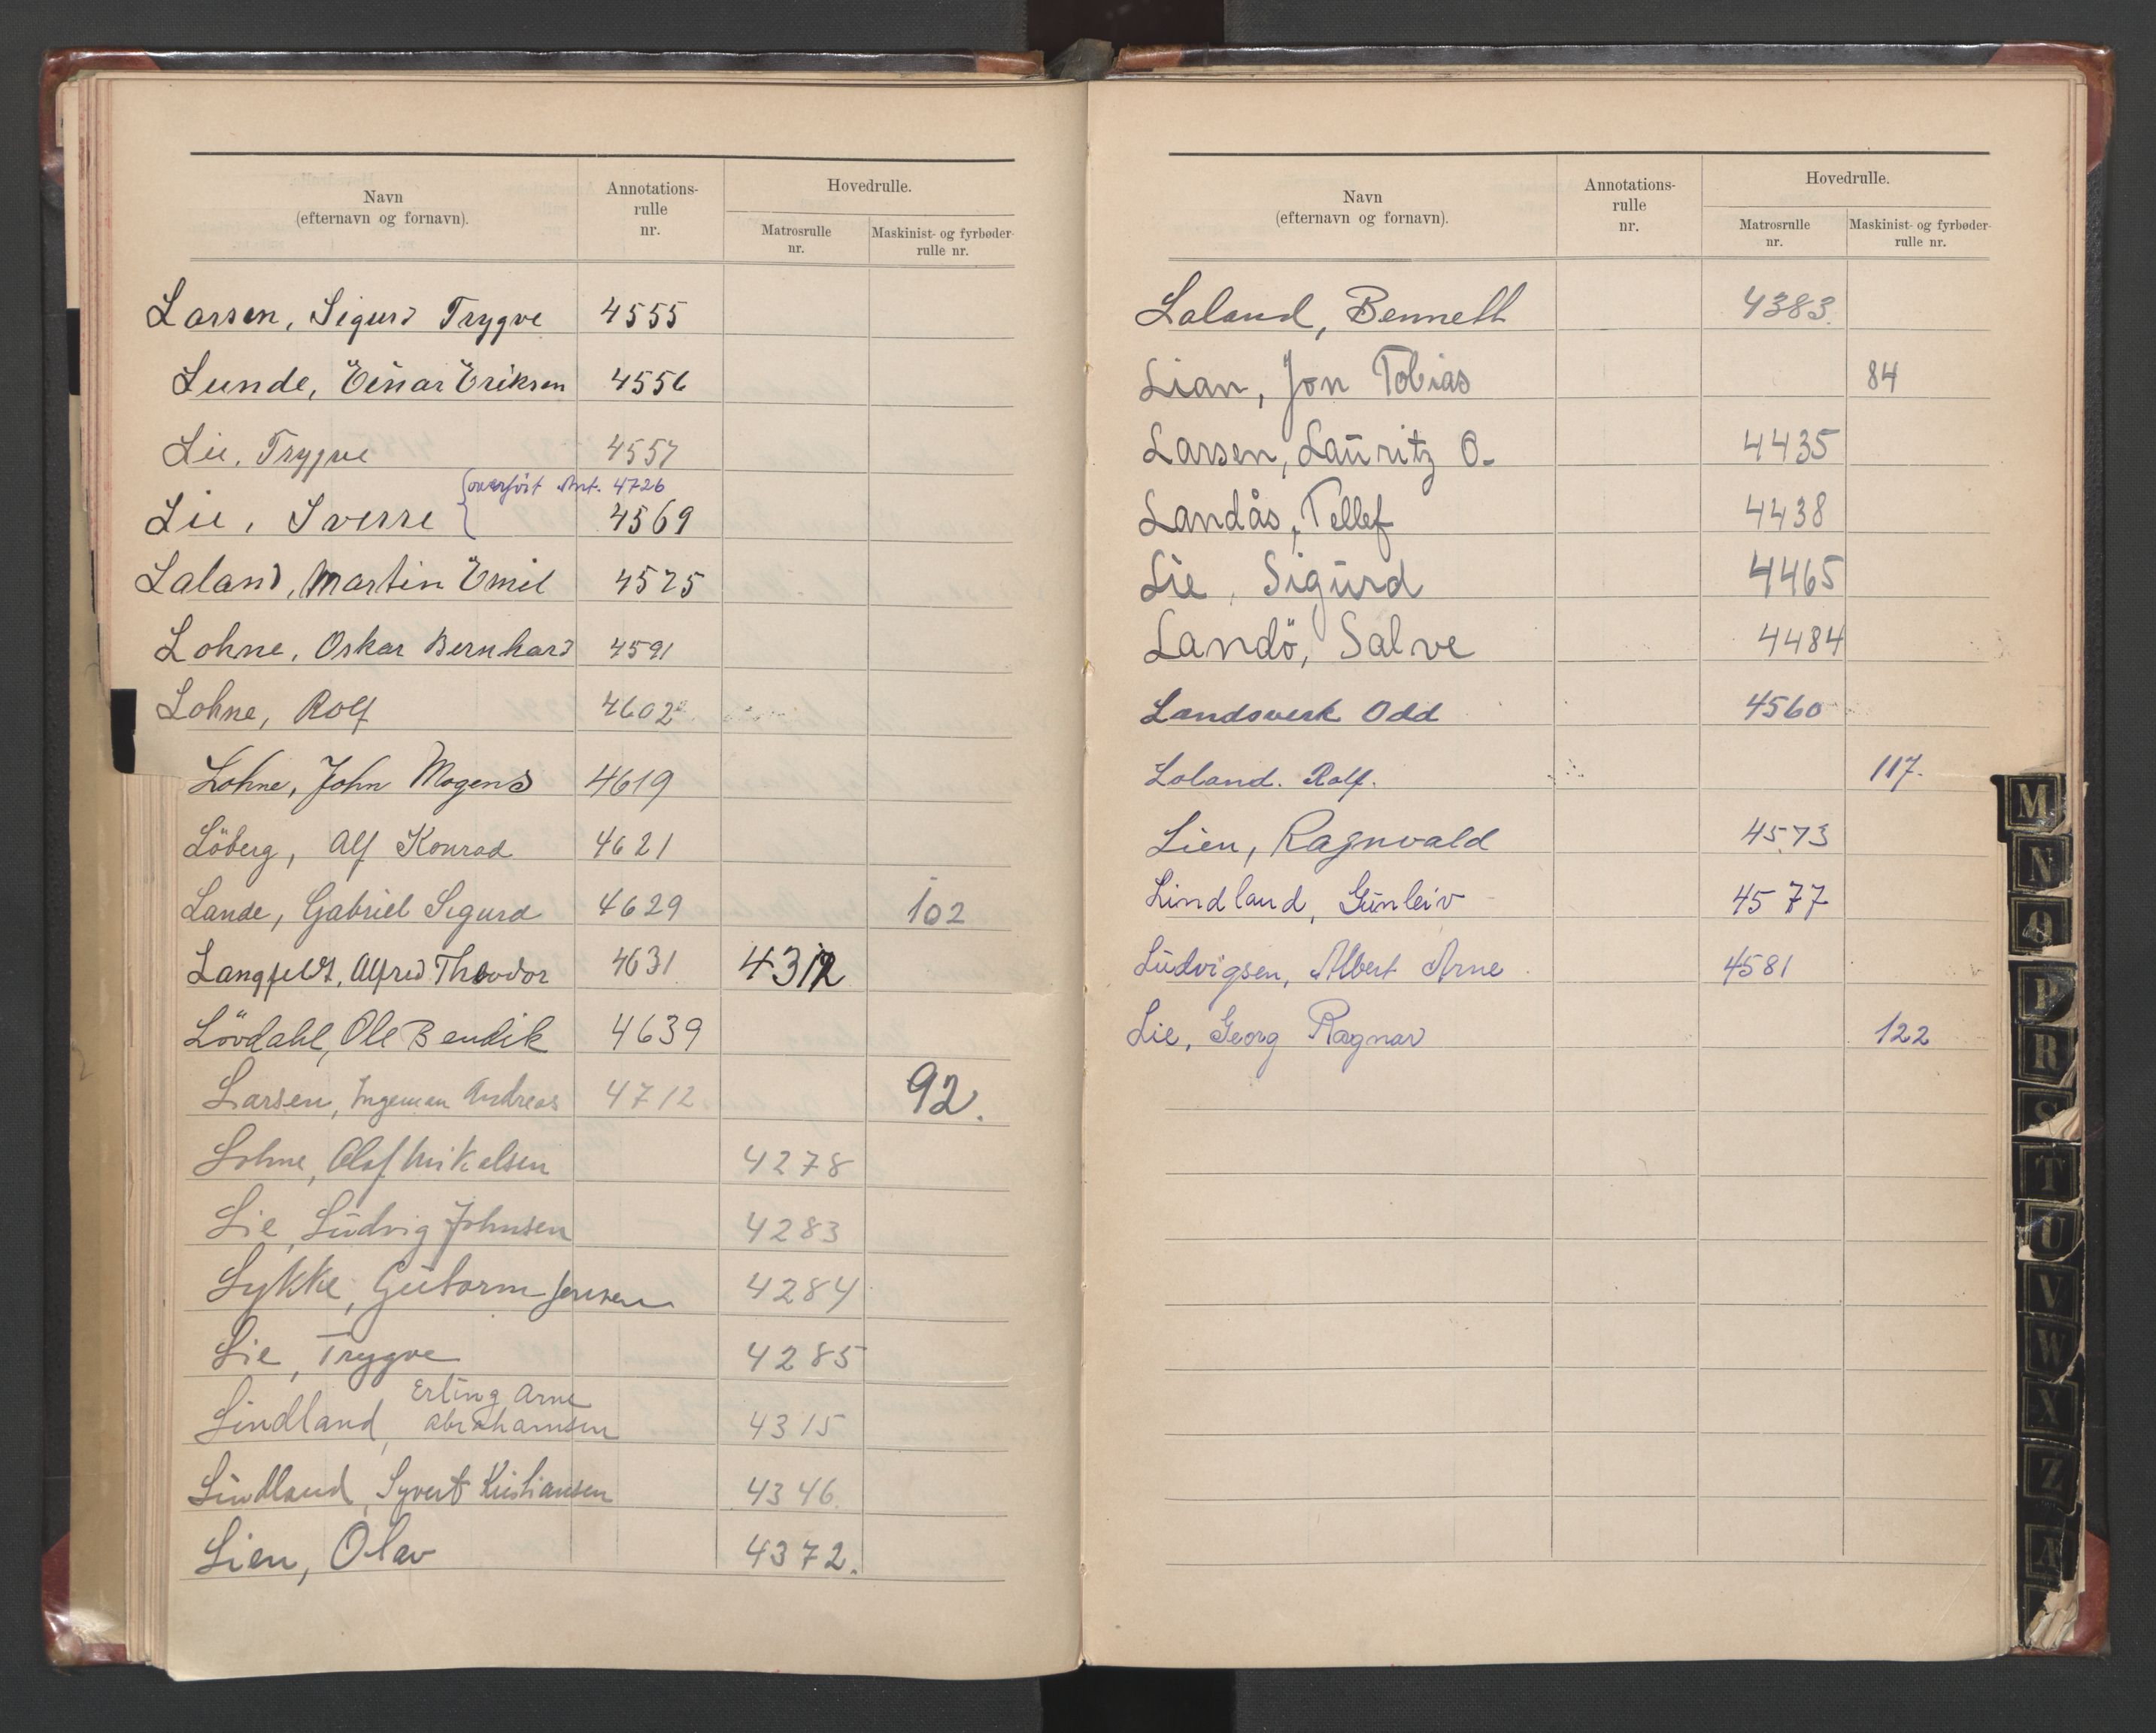 Navn
(efternavn og fornavn).
Annotations-
rulle
nr.
Hovedrulle.
Matrosrulle
nr.
Maskinist- og fyrbøder-
rulle nr.
Larsen, Sigurd Trygve 4555
Lunde, Einar Eriksen 4556
Lie, Trygve 4557
(overført Ant. 4726
Lie, Sverre 4569
Laland, Martin Emil 4575
Lohne, Oskar Bernhard 4591
Lohne, Rolf 4602
Lohne, John Mogens 4619
Löberg, Alf Konrad 4621
Lande, Gabriel Sigurd 4629 102
Langfeldt, Alfred Theodor 4631 4312
Lövdahl, Ole Bendik 4639
Larsen, Ingeman Andreas 4712 92.
Lohne, Olaf Mikalsen 4278
Lie, Ludvig Johnsen 4283
Lykke, Gutorm Jensen 4284
Lie, Trygve 4285
Erling Arne
Lindland, Abrahamsen 4315
Lindland, Syvert Kristiansen 4346.
Lien, Olav 4372.
Navn
(efternavn og fornavn).
Annotations-
rulle
nr.
Hovedrulle.
Matrosrulle
nr.
Maskinist- og fyrbøder-
rulle nr.
Laland, Bennett 4383.
Lian, Jon Tobias 84
Larsen, Lauritz O. 4435
Landås, Tellef 4438
Lie, Sigurd 4465
Landö, Salve 4484
Landsverk Odd 4560
Loland. Rolf. 117.
Lien, Ragnvald 4573
Lindland, Gunleiv 4577
Ludvigsen, Albert Arne 4581
Lie, Georg Ragnar 122
M
N
O
P
R
S
T
U
V
W
X
Z
Æ